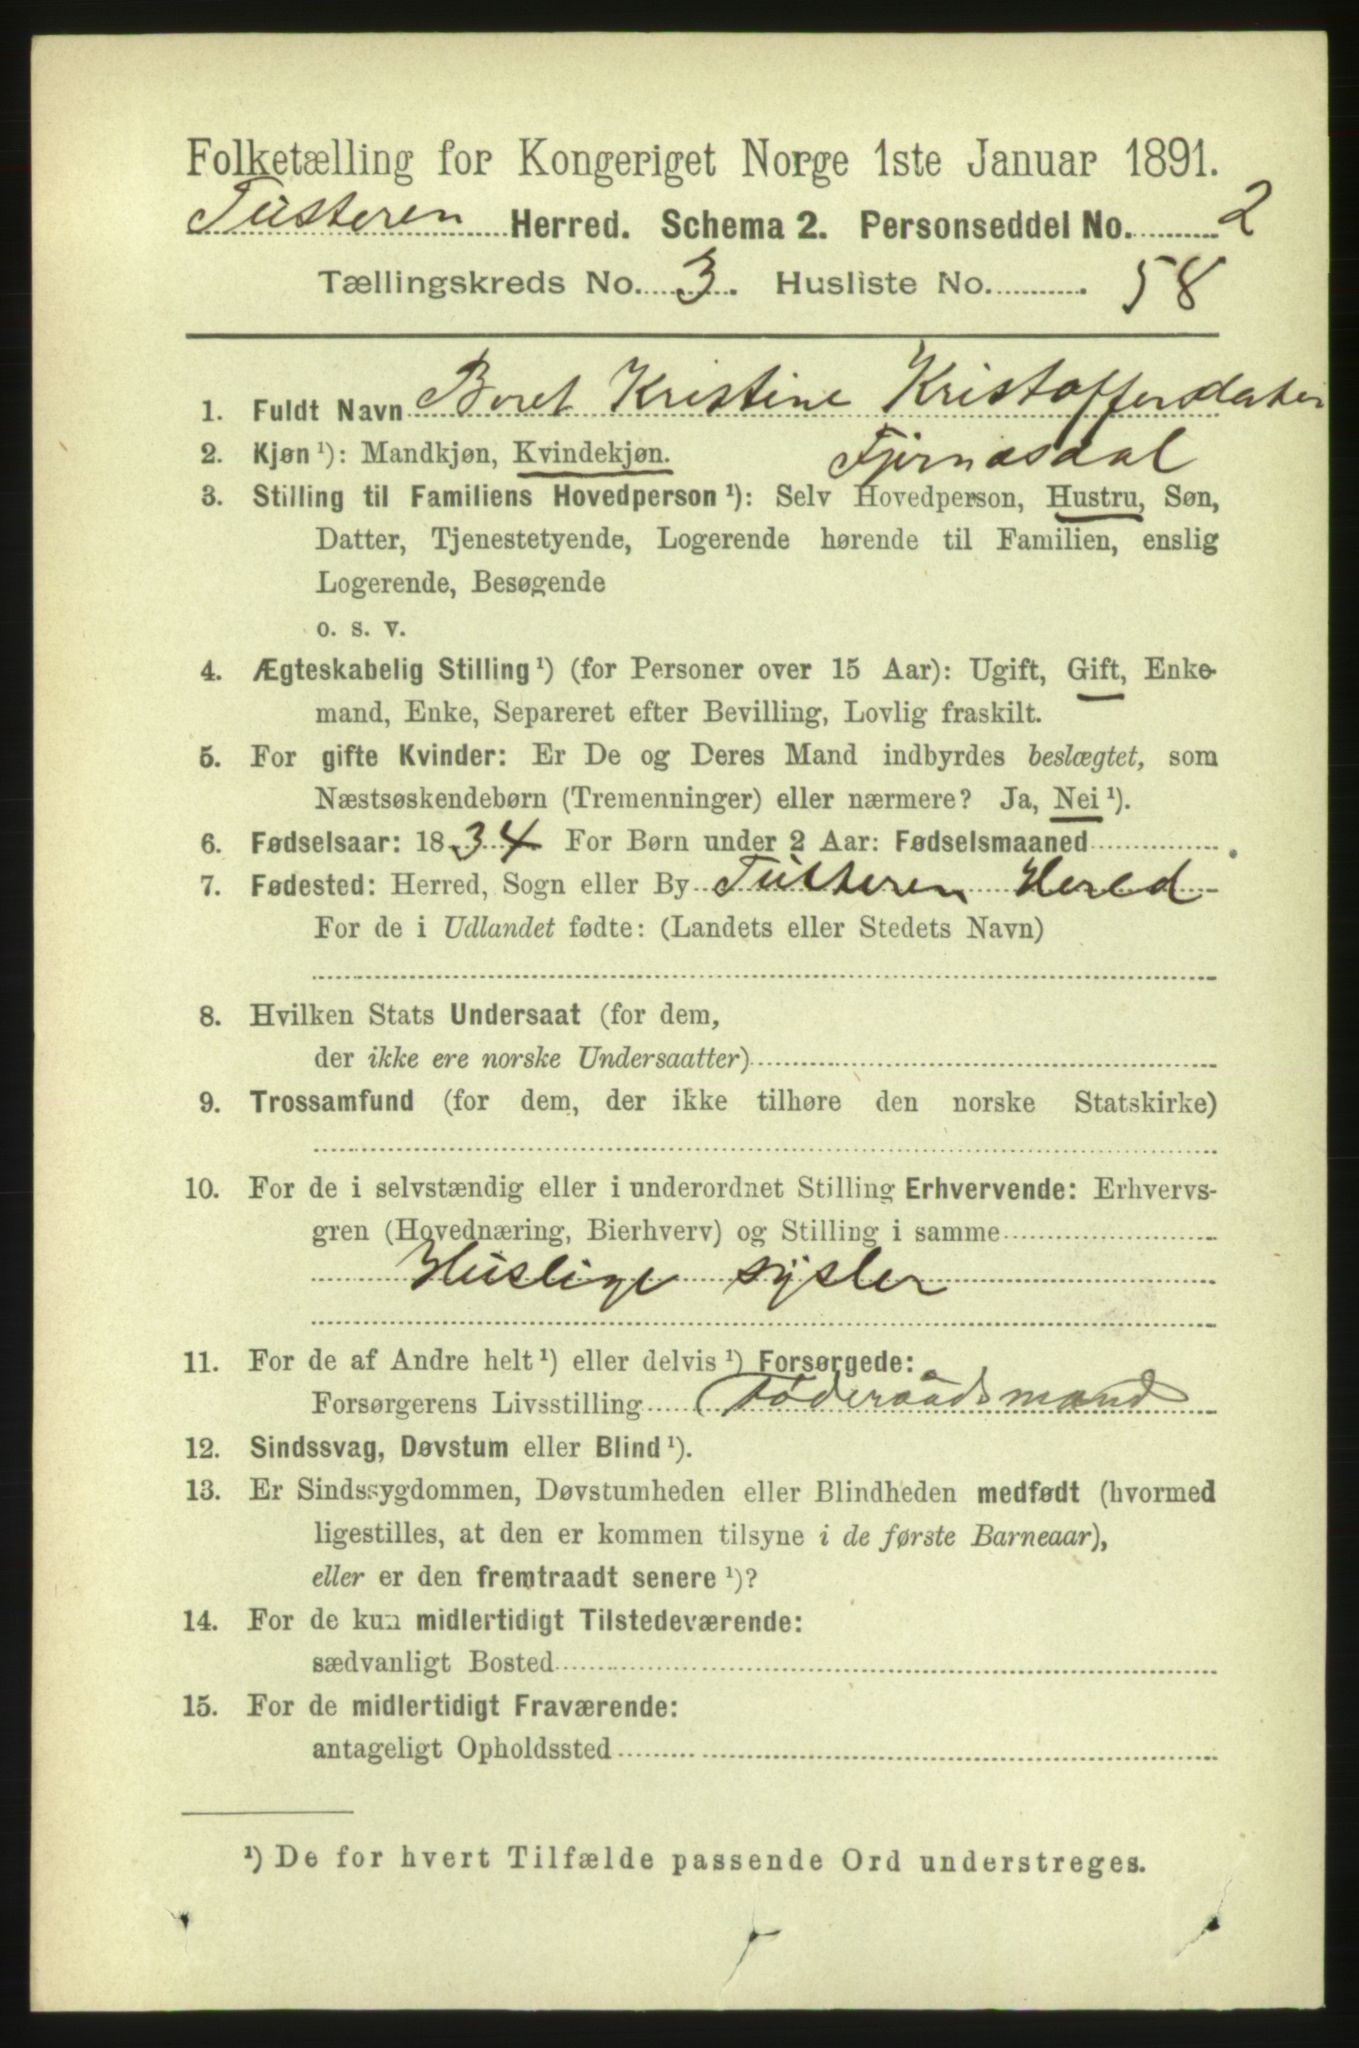 Folketælling for Kongeriget Norge 1ste Januar 1891.
Tusteren Herred. Schema 2. Personseddel No. 2
Tællingskreds No. 3. Husliste No. 58
1. Fuldt Navn Beret Kristine Kristoffersdatter
Fjernasdal
2. Kjøn ¹): Mandkjøn, Kvindekjøn.
3. Stilling til Familiens Hovedperson ¹): Selv Hovedperson, Hustru, Søn,
Datter, Tjenestetyende, Logerende hørende til Familien, enslig
Logerende, Besøgende
o. s. v.
4. Ægteskabelig Stilling ¹) (for Personer over 15 Aar): Ugift, Gift, Enke-
mand, Enke, Separeret efter Bevilling, Lovlig fraskilt.
5. For gifte Kvinder: Er De og Deres Mand indbyrdes beslægtet, som
Næstsøskendebørn (Tremenninger) eller nærmere? Ja, Nei ¹).
6. Fødselsaar: 1834 For Børn under 2 Aar: Fødselsmaaned
7. Fødested: Herred, Sogn eller By Tusteren Hered
For de i Udlandet fødte: (Landets eller Stedets Navn)
8. Hvilken Stats Undersaat (for dem,
der ikke ere norske Undersaatter)
9. Trossamfund (for dem, der ikke tilhøre den norske Statskirke)
10. For de i selvstændig eller i underordnet Stilling Erhvervende: Erhvervs-
gren (Hovednæring, Bierhverv) og Stilling i samme
Huslige sysler
11. For de af Andre helt ¹) eller delvis ¹) Forsørgede:
Forsørgerens Livsstilling (Føderaadsmand
12. Sindssvag, Døvstum eller Blind ¹).
13. Er Sindssygdommen, Døvstumheden eller Blindheden medfødt (hvormed
ligestilles, at den er kommen tilsyne i de første Barneaar),
eller er den fremtraadt senere ¹)?
14. For de kun midlertidigt Tilstedeværende:
sædvanligt Bosted
15. For de midlertidigt Fraværende:
antageligt Opholdssted
¹) De for hvert Tilfælde passende Ord understreges.